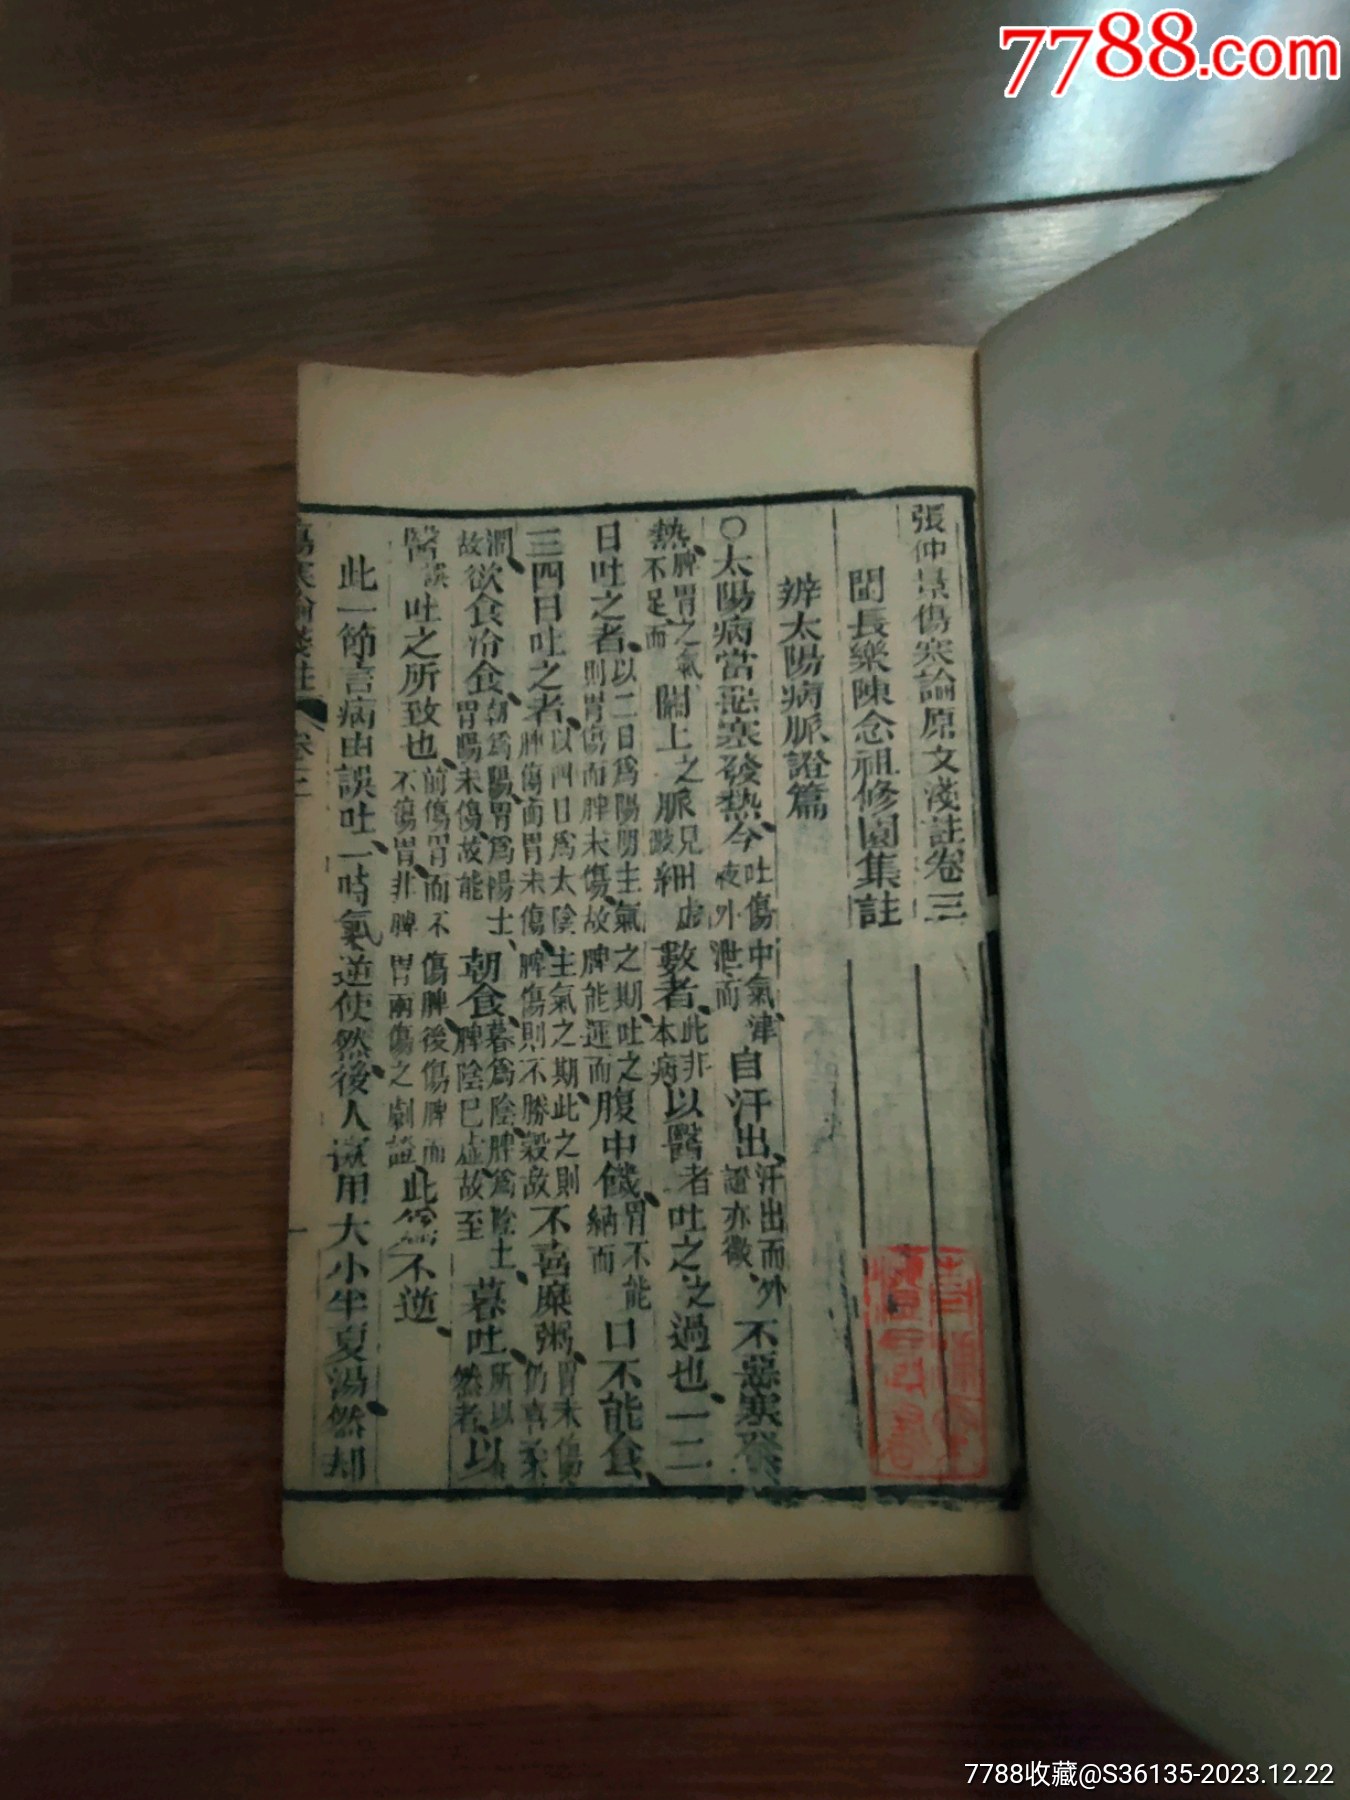 7788.com
張仲景傷寒論原文淺註卷三
閩長樂陳念祖修園集註
辨太陽病脈證篇
○太陽病當惡寒發熱、今吐傷中氣、津液外泄而自汗出、汗出而外證亦微、不惡寒發
熱、脾胃之氣不足、而關上之脈見細虛數者、此非本病以醫者吐之之過也、一二
日吐之者、以二日為陽明主氣之期、吐之則胃傷而脾未傷、故脾能運而腹中饑、胃不能納而口不能食、
三四日吐之者、以四日為太陰主氣之期、此之則脾傷而胃未傷、脾傷則不勝穀故不喜糜粥、胃未傷仍喜柔
潤、故欲食冷食、朝為陽胃為陽土、胃陽未傷故能朝食、暮為陰脾為陰土、脾陰已虛、故至暮吐、所以然者、以
醫誤吐之所致也、前傷胃而不傷脾、後傷脾而不傷胃非脾胃兩傷之劇證、此為小逆、
此一節言病由誤吐、一時氣逆使然、後人誤用大小半夏湯然却
傷寒論淺註 卷三 一
7788收藏@S36135-2023.12.22